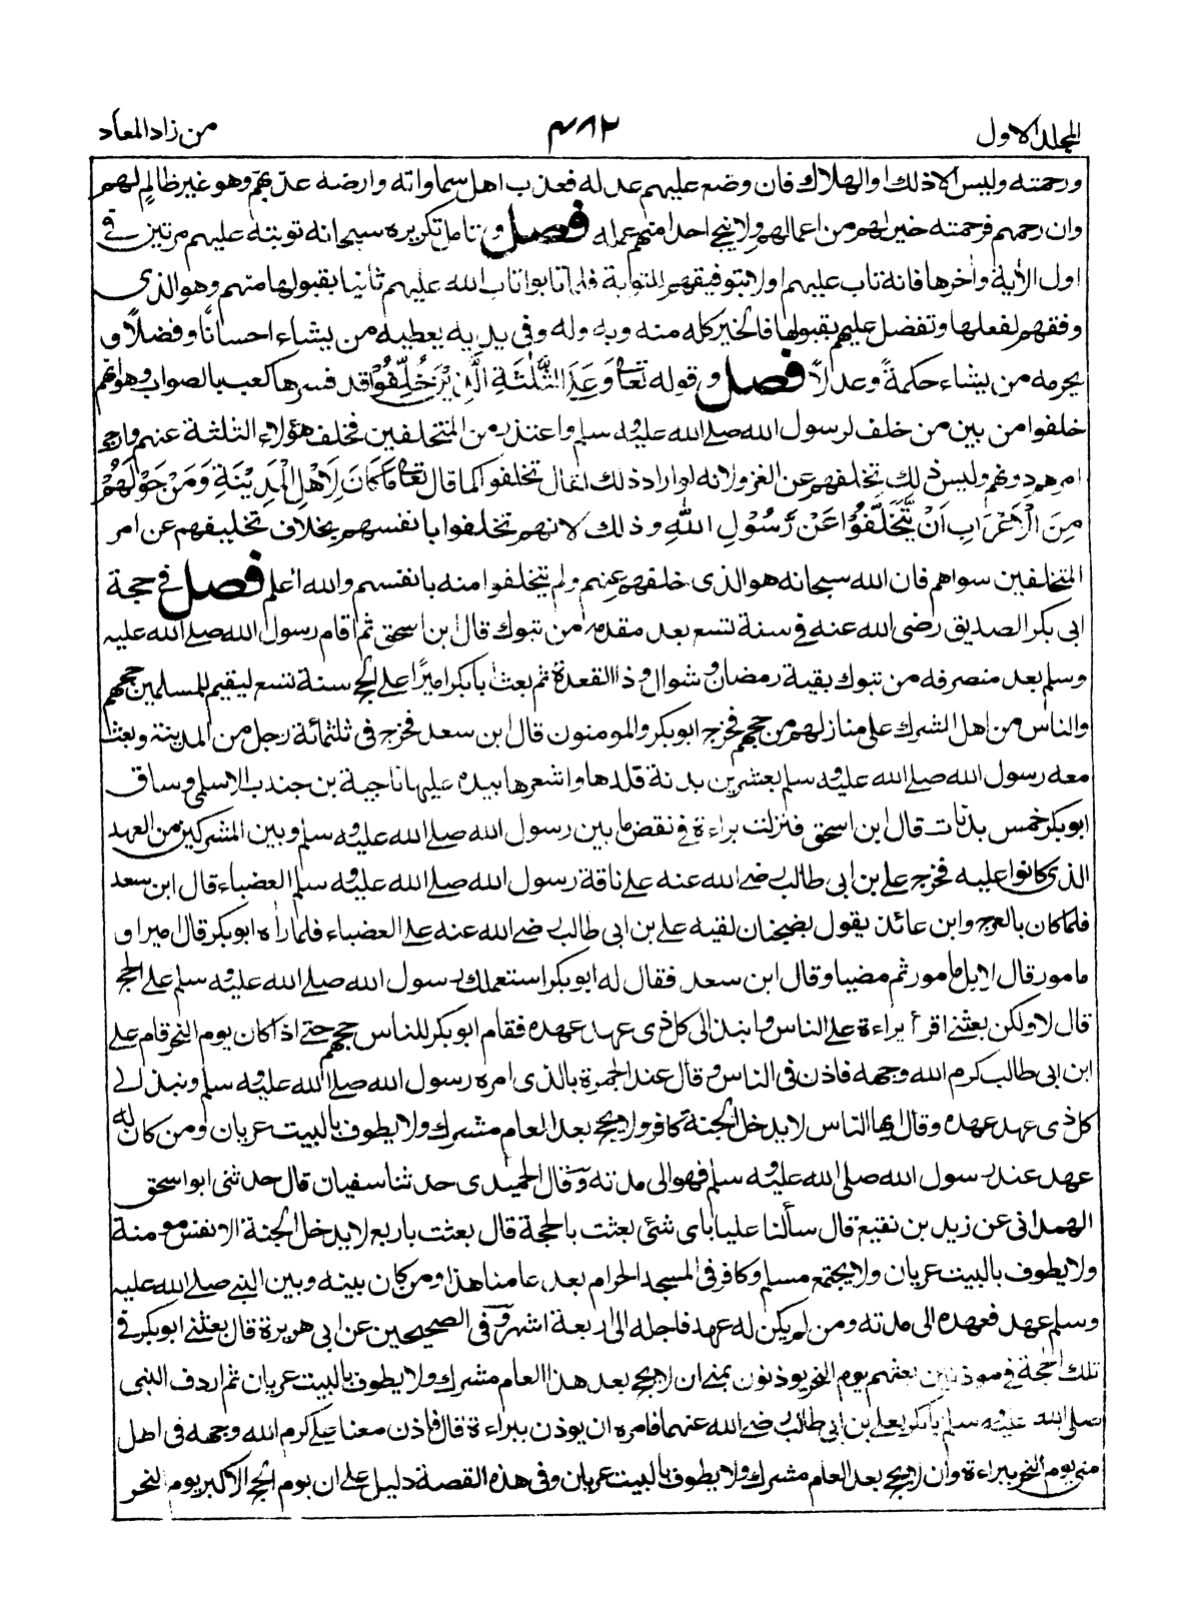 المجلد الاول
٤٨٢
من زاد المعاد
ورحمته وليس الا ذلك او الهلاك فان وضع عليهم عدله فعذب اهل سماواته وارضه عذبهم وهو غير ظالم لهم
وان رحمهم فرحمته خير لهم من اعمالهم ولا ينجي احدا منهم عمله فصل وتامل تكريره سبحانه توبته عليهم مرتين في
اول الاية واخرها فانه تاب عليهم اولا بتوفيقهم للتوبة فلما تابوا تاب الله عليهم ثانيا بقبولها منهم وهو الذي
وفقهم لفعلها وتفضل عليهم بقبولها فالخير كله منه وبه وله وفي يديه يعطيه من يشاء احسانًا وفضلاً و
يحرمه من يشاء حكمةً وعدلاً فصل وقوله تعا وَعَلَى الثَّلٰثَةِ الَّذِيْنَ خُلِّفُوْا قد فسرها كعب بالصواب وهو انهم
خلفوا من بين من خلف لرسول الله صلے الله عليه وسلم واعتذر من المتخلفين فخلف هؤلاء الثلثة عنهم وارجى
امرهم دونهم وليس ذلك تخلفهم عن الغزو لانه لو اراد ذلك لقال تخلفوا كما قال تعا مَا كَانَ لِاَهْلِ الْمَدِيْنَةِ وَمَنْ حَوْلَهُمْ
مِنَ الْاَعْرَابِ اَنْ يَّتَخَلَّفُوْا عَنْ رَّسُوْلِ اللّٰهِ وذلك لانهم تخلفوا بانفسهم بخلاف تخليفهم عن امر
المتخلفين سواهم فان الله سبحانه هو الذي خلفهم عنهم ولم يتخلفوا منه بانفسهم والله اعلم فصل في حجة
ابي بكر الصديق رضي الله عنه في سنة تسع بعد مقدمه من تبوك قال ابن اسحق ثم اقام رسول الله صلے الله عليه
وسلم بعد منصرفه من تبوك بقية رمضان وشوال وذا القعدة ثم بعث ابا بكر اميرًا على الحج سنة تسع ليقيم للمسلمين حجهم
والناس من اهل الشرك على منازلهم من حجهم فخرج ابو بكر والمومنون قال ابن سعد فخرج في ثلثمائة رجل من المدينة وبعث
معه رسول الله صلے الله عليه وسلم بعشرين بدنة قلدها واشعرها بيده عليها ناجية بن جندب الاسلمي وساق
ابو بكر خمس بدنات قال ابن اسحق فنزلت براءة في نقض ما بين رسول الله صلے الله عليه وسلم وبين المشركين من العهد
الذي كانوا عليه فخرج علي بن ابي طالب رضے الله عنه علے ناقة رسول الله صلے الله عليه وسلم العضباء قال ابن سعد
فلما كان بالعرج وابن عائذ يقول بضجنان لقيه علے بن ابي طالب رضے الله عنه علے العضباء فلما رآه ابو بكر قال امير او
مامور قال لا بل مامور ثم مضيا وقال ابن سعد فقال له ابو بكر استعملك رسول الله صلے الله عليه وسلم على الحج
قال لا ولكن بعثنے اقرأ براءة علے الناس وانبذ الى كل ذي عهد عهده فقام ابو بكر للناس حجهم حتے اذا كان يوم النحر قام علے
ابن ابي طالب كرم الله وجهه فاذن في الناس وقال عند الجمرة بالذي امره رسول الله صلے الله عليه وسلم ونبذ الے
كل ذي عهد عهده وقال ايها الناس لا يدخل الجنة كافر ولا يحج بعد العام مشرك ولا يطوف بالبيت عريان ومن كان له
عهد عند رسول الله صلى الله عليه وسلم فهو الى مدته وقال الحميدي حدثنا سفيان قال حدثني ابو اسحق
الهمداني عن زيد بن نفيع قال سألنا عليا باي شئ بعثت بالحجة قال بعثت باربع لا يدخل الجنة الا نفس مومنة
ولا يطوف بالبيت عريان ولا يجتمع مسلم وكافر في المسجد الحرام بعد عامنا هذا ومن كان بينه وبين النبي صلے الله عليه
وسلم عهد فعهده الى مدته ومن لم يكن له عهد فاجله الى اربعة اشهر وفي الصحيحين عن ابي هريرة قال بعثنے ابو بكر في
تلك الحجة في موذنين بعثهم يوم النحر يوذنون بمنے ان لا يحج بعد هذا العام مشرك ولا يطوف بالبيت عريان ثم اردف النبى
صلى الله عليه وسلم ابا بكر بعلے بن ابي طالب رضے الله عنهما فامره ان يوذن ببراءة قال فاذن معنا علے كرم الله وجهه في اهل
منى يوم النحر ببراءة وان لا يحج بعد العام مشرك ولا يطوف بالبيت عريان وفي هذه القصة دليل علے ان يوم الحج الاكبر يوم النحر